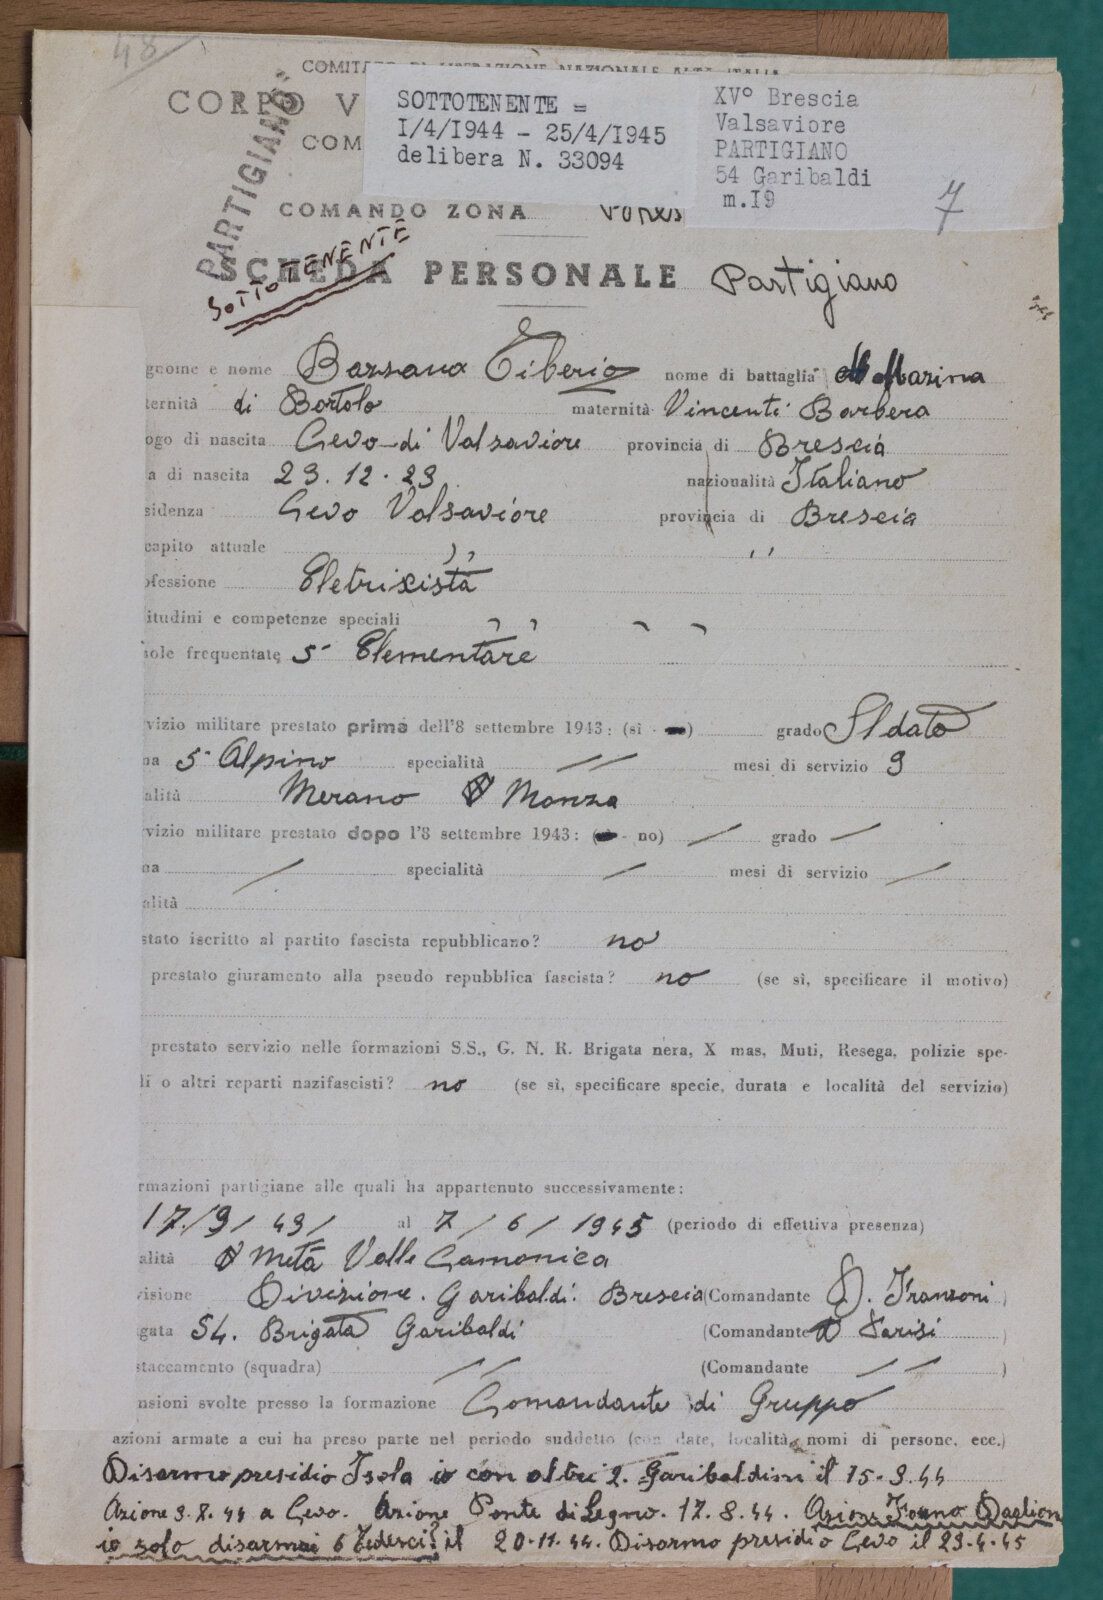 48
COMITATO DI LIBERAZIONE NAZIONALE ALTA ITALIA
CORPO V
COM
SOTTOTENENTE =
I/4/I944 - 25/4/I945
delibera N. 33094
XV° Brescia
Valsaviore
PARTIGIANO
54 Garibaldi
m.I9
7
PARTIGIANO
COMANDO ZONA
SOTTOTENENTE
SCHEDA PERSONALE Partigiano
gnome e nome Bazzana Tiberio nome di battaglia Marina
ternità di Bortolo maternità Vincenti Barbera
ogo di nascita Cevo di Valsaviore provincia di Brescia
a di nascita 23.12.23 nazionalità Italiano
sidenza Cevo Valsaviore provincia di Brescia
capito attuale ,, ,,
ofessione Eletrixista
itudini e competenze speciali
uole frequentate 5ª Elementare
vizio militare prestato prima dell'8 settembre 1943: (sì - ) grado Sldato
ma 5º Alpino specialità // mesi di servizio 9
alità Merano Monza
vizio militare prestato dopo l'8 settembre 1943: ( - no) / grado /
ma / specialità / mesi di servizio /
alità
stato iscritto al partito fascista repubblicano? no
prestato giuramento alla pseudo repubblica fascista? no (se sì, specificare il motivo)
prestato servizio nelle formazioni S.S., G. N. R. Brigata nera, X mas, Muti, Resega, polizie spe-
li o altri reparti nazifascisti? no (se sì, specificare specie, durata e località del servizio)
rmazioni partigiane alle quali ha appartenuto successivamente:
17/9/43/ al 7/6/1945 (periodo di effettiva presenza)
alità Metà Valle Camonica
visione Divizione. Garibaldi Brescia (Comandante D. Franzoni)
gata 54. Brigata Garibaldi (Comandante Parisi)
staccamento (squadra) // (Comandante //)
nsioni svolte presso la formazione Comandante di Gruppo
azioni armate a cui ha preso parte nel periodo suddetto (con date, località, nomi di persone, ecc.)
Disarmo presidio Isola io con altri 2. Garibaldini il 15-9-44
Azione 3.7.44 a Cevo. Azione Ponte di Legno. 17.8.44. Azione
io solo disarmai 6 Tedeschi il 20-11-44. Disarmo presidio Cevo il 23-4-45